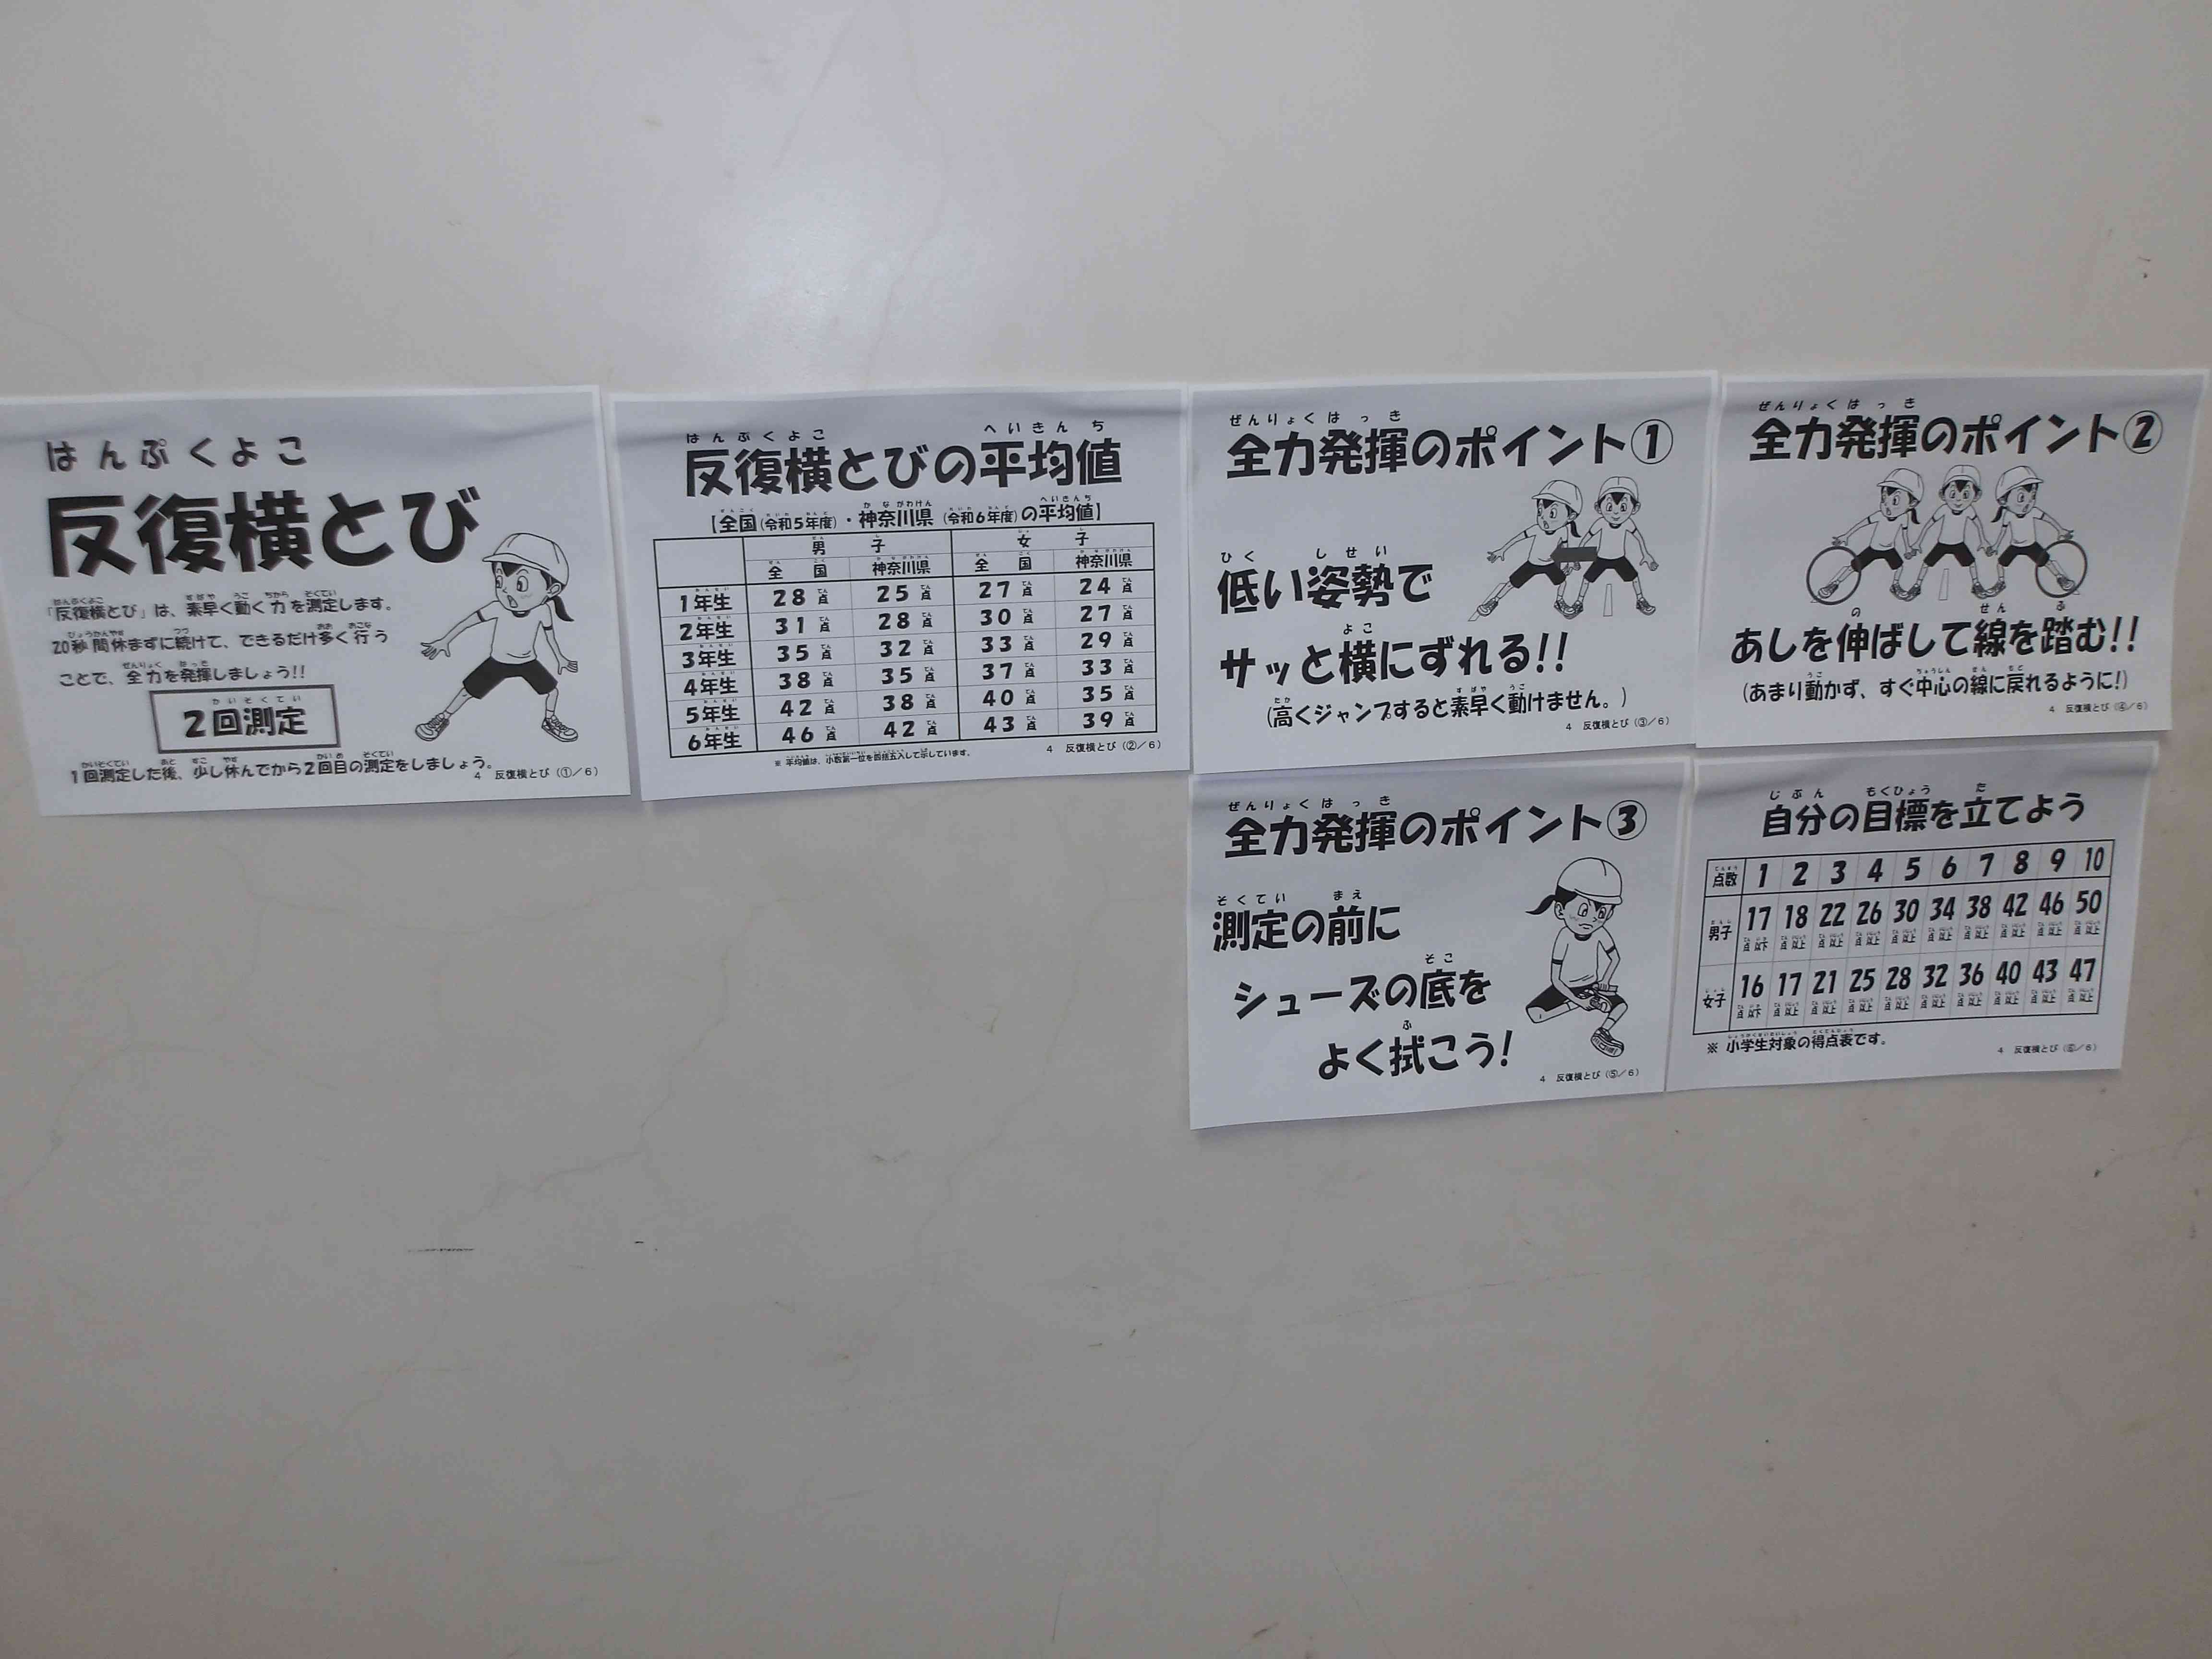 はんぷくよこ
反復横とび
「反復横とび」は、素早く動く力を測定します。
20秒間休まずに続けて、できるだけ多く行う
ことで、全力を発揮しましょう!!
かいそくてい
2回測定
1回測定した後、少し休んでから2回目の測定をしましょう。
4 反復横とび（①／6）
はんぷくよこ へいきんち
反復横とびの平均値
【全国(令和5年度)・神奈川県(令和6年度)の平均値】
男子 女子
全国 神奈川県 全国 神奈川県
1年生 28点 25点 27点 24点
2年生 31点 28点 30点 27点
3年生 35点 32点 33点 29点
4年生 38点 35点 37点 33点
5年生 42点 38点 40点 35点
6年生 46点 42点 43点 39点
※ 平均値は、小数第一位を四捨五入して示しています。
4 反復横とび（②／6）
ぜんりょくはっき
全力発揮のポイント①
ひく しせい
低い姿勢で
よこ
サッと横にずれる!!
(高くジャンプすると素早く動けません。)
4 反復横とび（③／6）
ぜんりょくはっき
全力発揮のポイント②
の せん ふ
あしを伸ばして線を踏む!!
(あまり動かず、すぐ中心の線に戻れるように!)
4 反復横とび（④／6）
ぜんりょくはっき
全力発揮のポイント③
そくてい まえ
測定の前に
そこ
シューズの底を
ふ
よく拭こう!
4 反復横とび（⑤／6）
じぶん もくひょう た
自分の目標を立てよう
点数 1 2 3 4 5 6 7 8 9 10
男子 17点以下 18点以上 22点以上 26点以上 30点以上 34点以上 38点以上 42点以上 46点以上 50点以上
女子 16点以下 17点以上 21点以上 25点以上 28点以上 32点以上 36点以上 40点以上 43点以上 47点以上
※ 小学生対象の得点表です。
4 反復横とび（⑥／6）